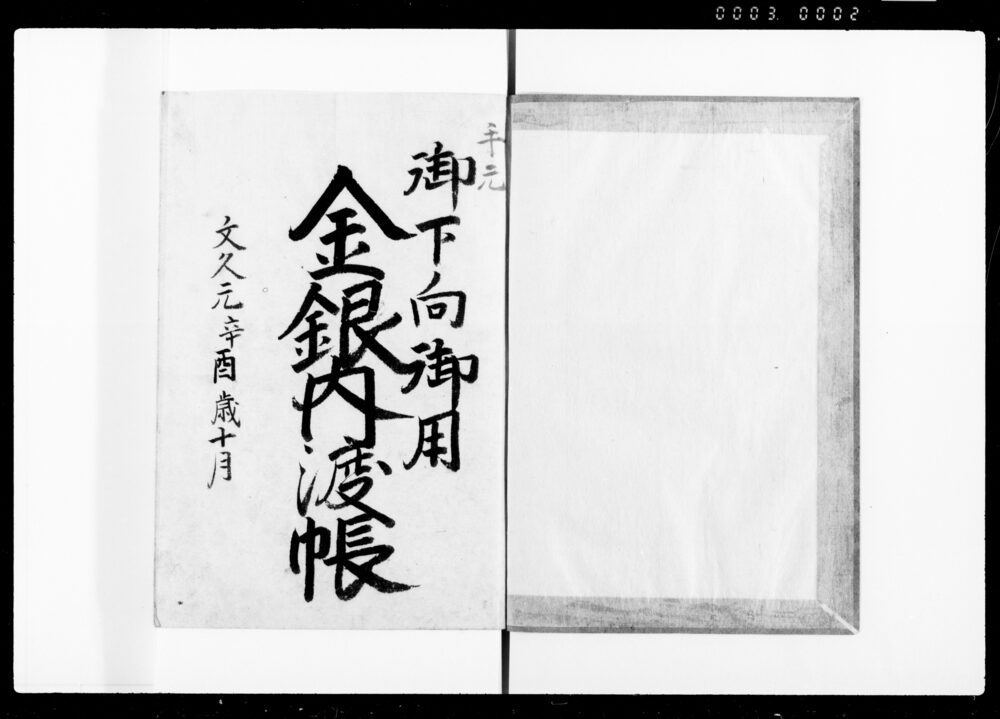 0003. 0002
手元
御下向御用
金銀内渡帳
文久元辛酉歳十月